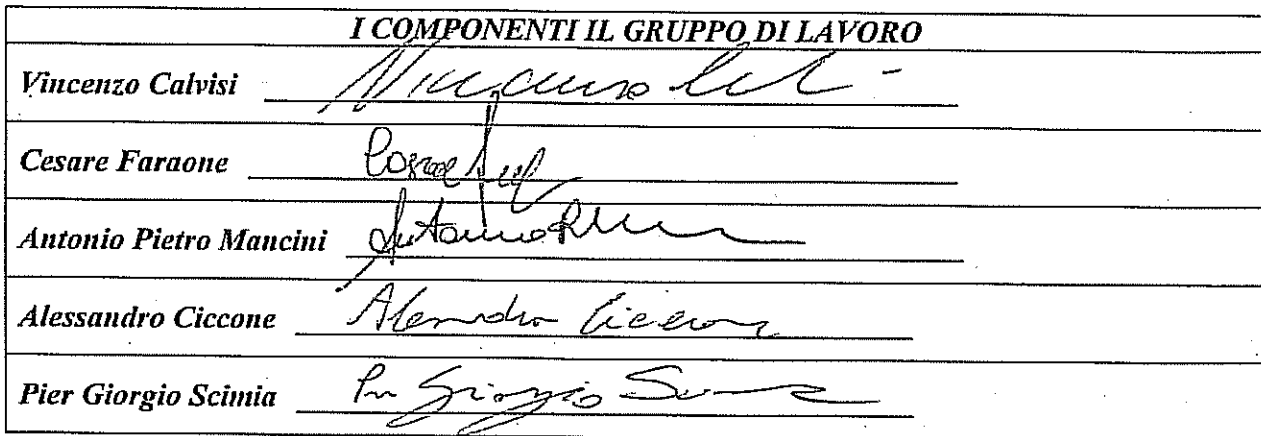 I COMPONENTI IL GRUPPO DI LAVORO
Vincenzo Calvisi
Cesare Faraone
Antonio Pietro Mancini
Alessandro Ciccone Alessandro Ciccone
Pier Giorgio Scimia Pier Giorgio